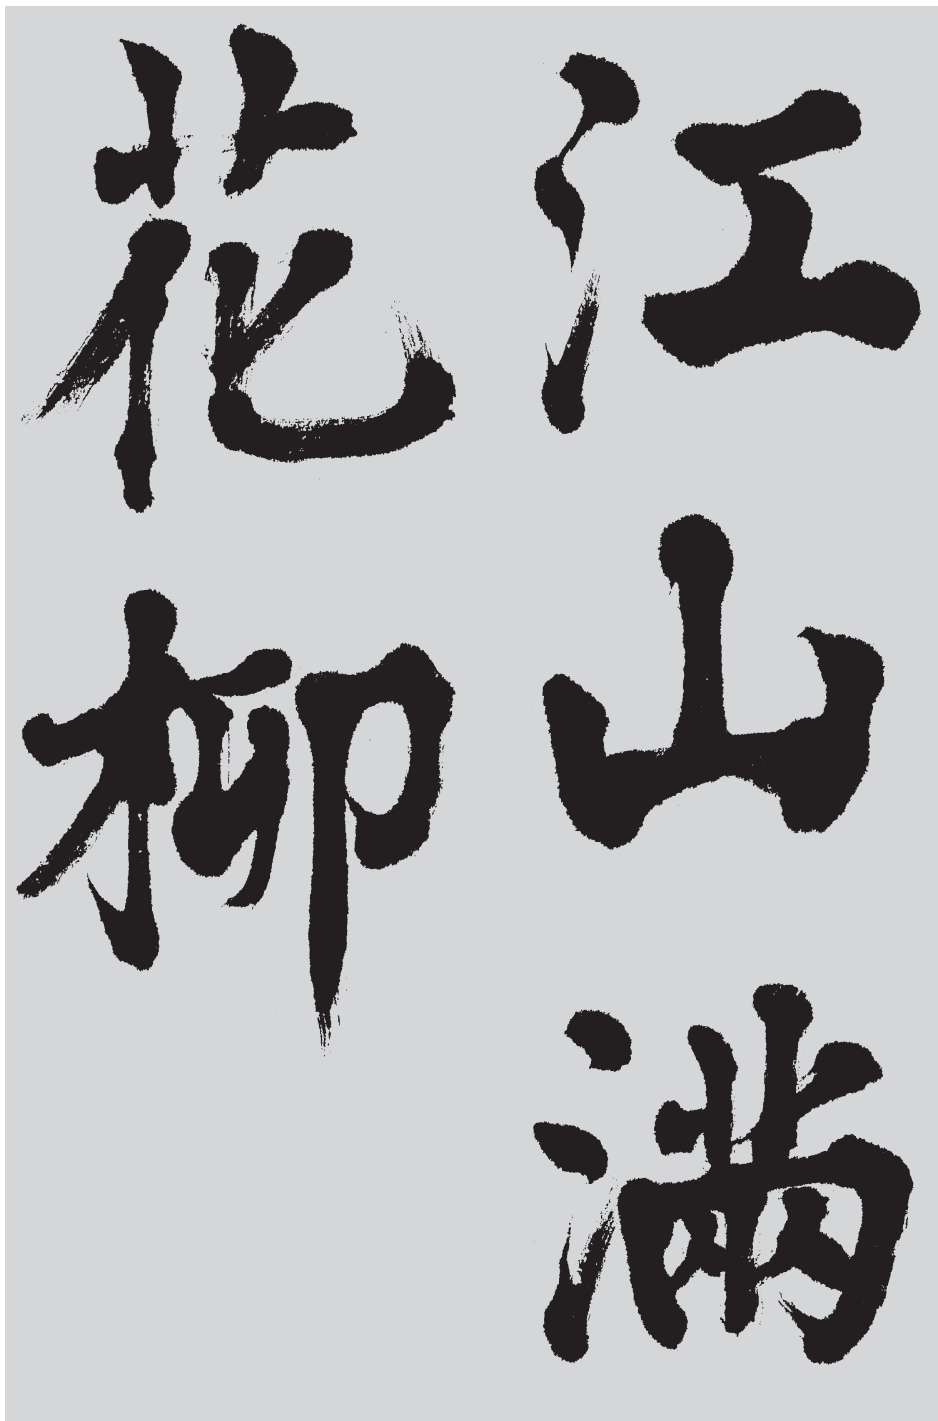 江山满
花柳